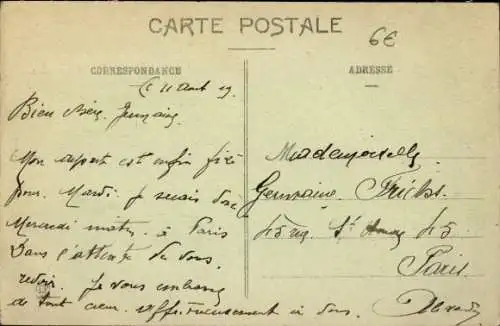 CARTE POSTALE
6€
CORRESPONDANCE
ADRESSE
Le 11 Août 19.
Bien chère Germaine.
Mon départ est enfin fixé
pour Mardi. Je serais donc
Mercredi matin à Paris
Dans l'attente de vous
revoir. Je vous embrasse
de tout cœur. affectueusement à vous.
Mademoiselle
Germaine
45 rue St 45
Paris